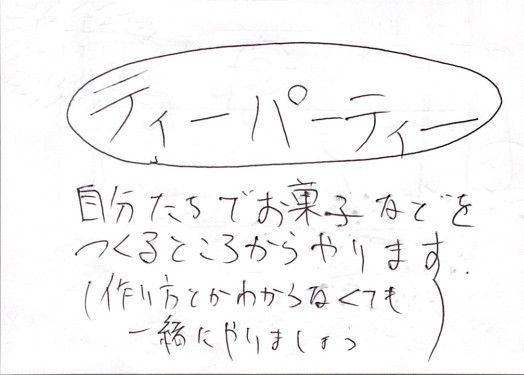 ティーパーティー
自分たちでお菓子などを
つくるところからやります.
(作り方とかわからなくても
一緒にやりましょう)